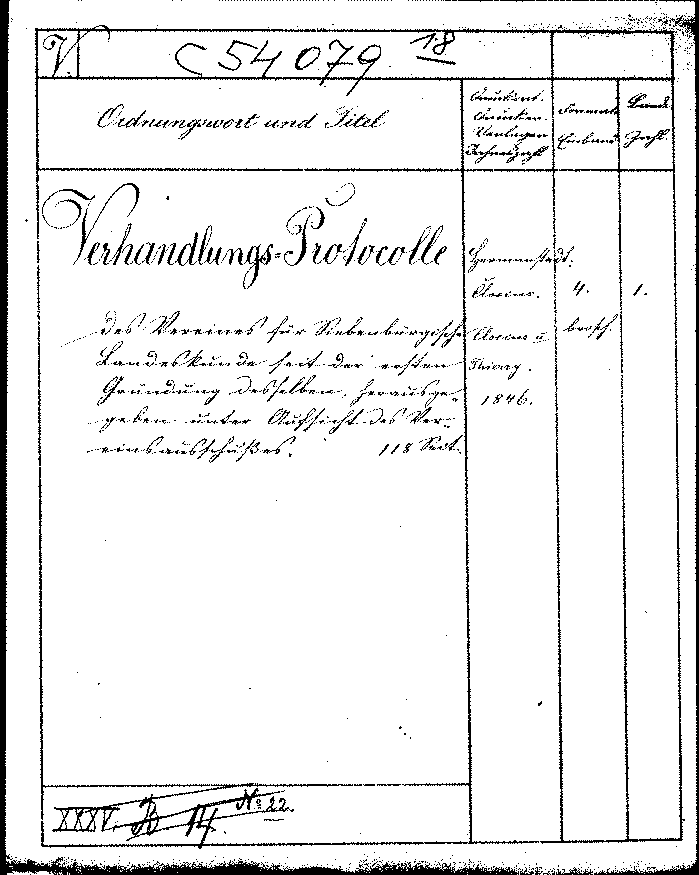 V. C 54079 18
Ordnungswort und Titel
Druckort.
Drucker.
Verleger
Jahreszahl
Format
Einband
Band-
Zahl.
Verhandlungs-Protocolle
des Vereines für Siebenbürgische
Landeskunde seit der ersten
Gründung desselben, herausge-
geben unter Aufsicht des Ver-
einsausschußes. 118 Seit.
Hermannstadt.
1846.
4.
brosch.
1.
XXXV. B 14. No 22.